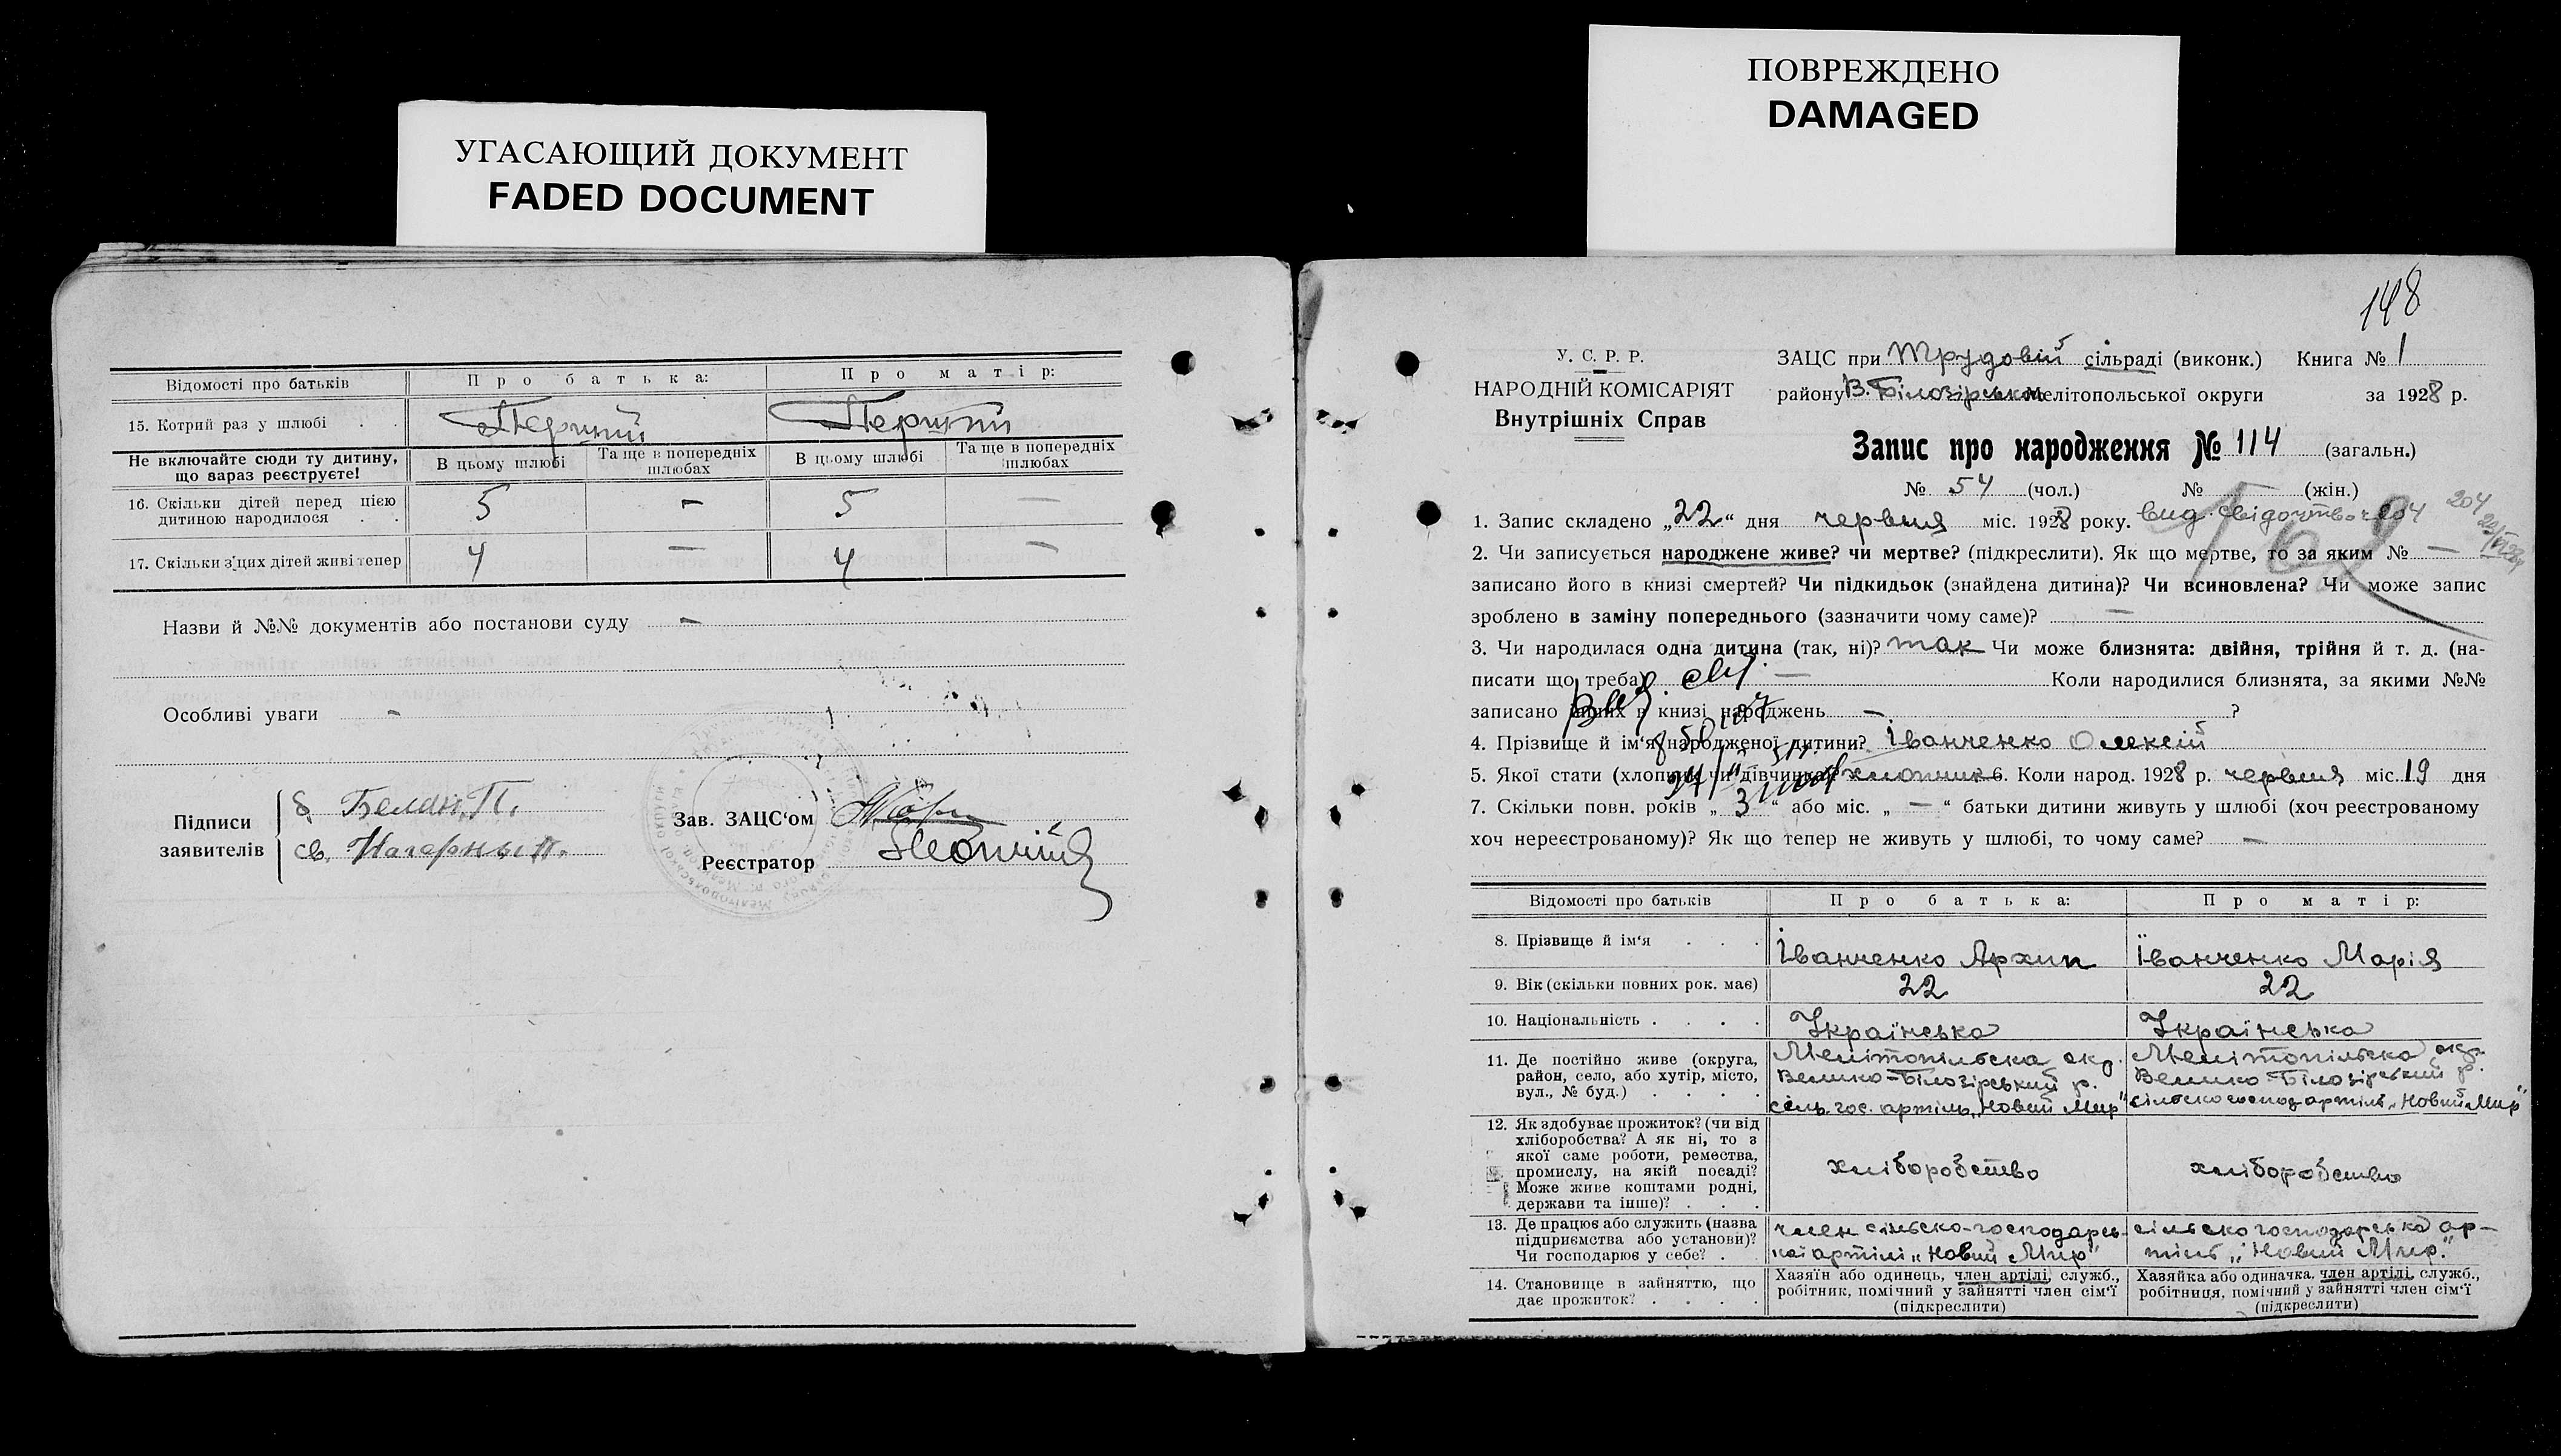 УГАСАЮЩИЙ ДОКУМЕНТ
FADED DOCUMENT
Відомості про батьків Про батька: Про матір:
15. Котрий раз у шлюбі . . Перший Перший
Не включайте сюди ту дитину,
що зараз реєструєте!
В цьому шлюбі Та ще в попередніх
шлюбах
В цьому шлюбі Та ще в попередніх
шлюбах
16. Скільки дітей перед цією
дитиною народилося . . 5 – 5 –
17. Скільки з'цих дітей живі тепер 4 – 4 –
Назви й №№ документів або постанови суду –
Особливі уваги –
Підписи
заявителів
б. Белан, П.
св. Нагорны П.
Зав. ЗАЦС'ом
Реєстратор
ПОВРЕЖДЕНО
DAMAGED
148
У. С. Р. Р.
НАРОДНІЙ КОМІСАРІЯТ
Внутрішніх Справ
ЗАЦС при Трудовій сільраді (виконк.) Книга № 1
району В. Білозірськ Мелітопольської округи за 1928 р.
Запис про народження № 114 (загальн.)
№ 54 (чол.) № – (жін.)
1. Запис складено „22“ дня червня міс. 1928 року. вид. свідоцтво 204
2. Чи записується народжене живе? чи мертве? (підкреслити). Як що мертве, то за яким № –
записано його в книзі смертей? Чи підкидьок (знайдена дитина)? Чи всиновлена? Чи може запис
зроблено в заміну попереднього (зазначити чому саме)? –
3. Чи народилася одна дитина (так, ні)? так Чи може близнята: двійня, трійня й т. д. (на-
писати що треба) – Коли народилися близнята, за якими №№
записано інших в книзі народжень – ?
4. Прізвище й ім'я народженої дитини? Іванченко Олексій
5. Якої стати (хлопчик чи дівчинка)? хлопчик 6. Коли народ. 1928 р. червня міс. 19 дня
7. Скільки повн. років „ 3 “ або міс. „ – “ батьки дитини живуть у шлюбі (хоч реєстрованому
хоч нереєстрованому)? Як що тепер не живуть у шлюбі, то чому саме? –
Відомості про батьків Про батька: Про матір:
8. Прізвище й ім'я . . . Іванченко Архип Їванченко Марія
9. Вік (скільки повних рок. має) 22 22
10. Національність . . . . Українська Українська
11. Де постійно живе (округа,
район, село, або хутір, місто,
вул., № буд.) . . . .
Мелітопільска окр.
Велико-Білозірський р.
сіль. гос. артіль „Новий Мир“
Мелітопільска окр.
Велико-Білозірський р.
сільскогосподартіль „Новий Мир“
12. Як здобуває прожиток? (чи від
хліборобства? А як ні, то з
якої саме роботи, ремества,
промислу, на якій посаді?
Може живе коштами родні,
держави та інше)? . . .
хліборобство хліборобство
13. Де працює або служить (назва
підприємства або установи)?
Чи господарює у себе? .
член сільско-господарсь-
кої артілі „Новий Мир“
сільскогосподарська ар-
тіль „Новий Мир.“
14. Становище в зайняттю, що
дає прожиток? . . . .
Хазяїн або одинець, член артілі, служб.,
робітник, помічний у зайнятті член сім'ї
(підкреслити)
Хазяйка або одиначка, член артілі, служб.,
робітниця, помічний у зайнятті член сім'ї
(підкреслити)